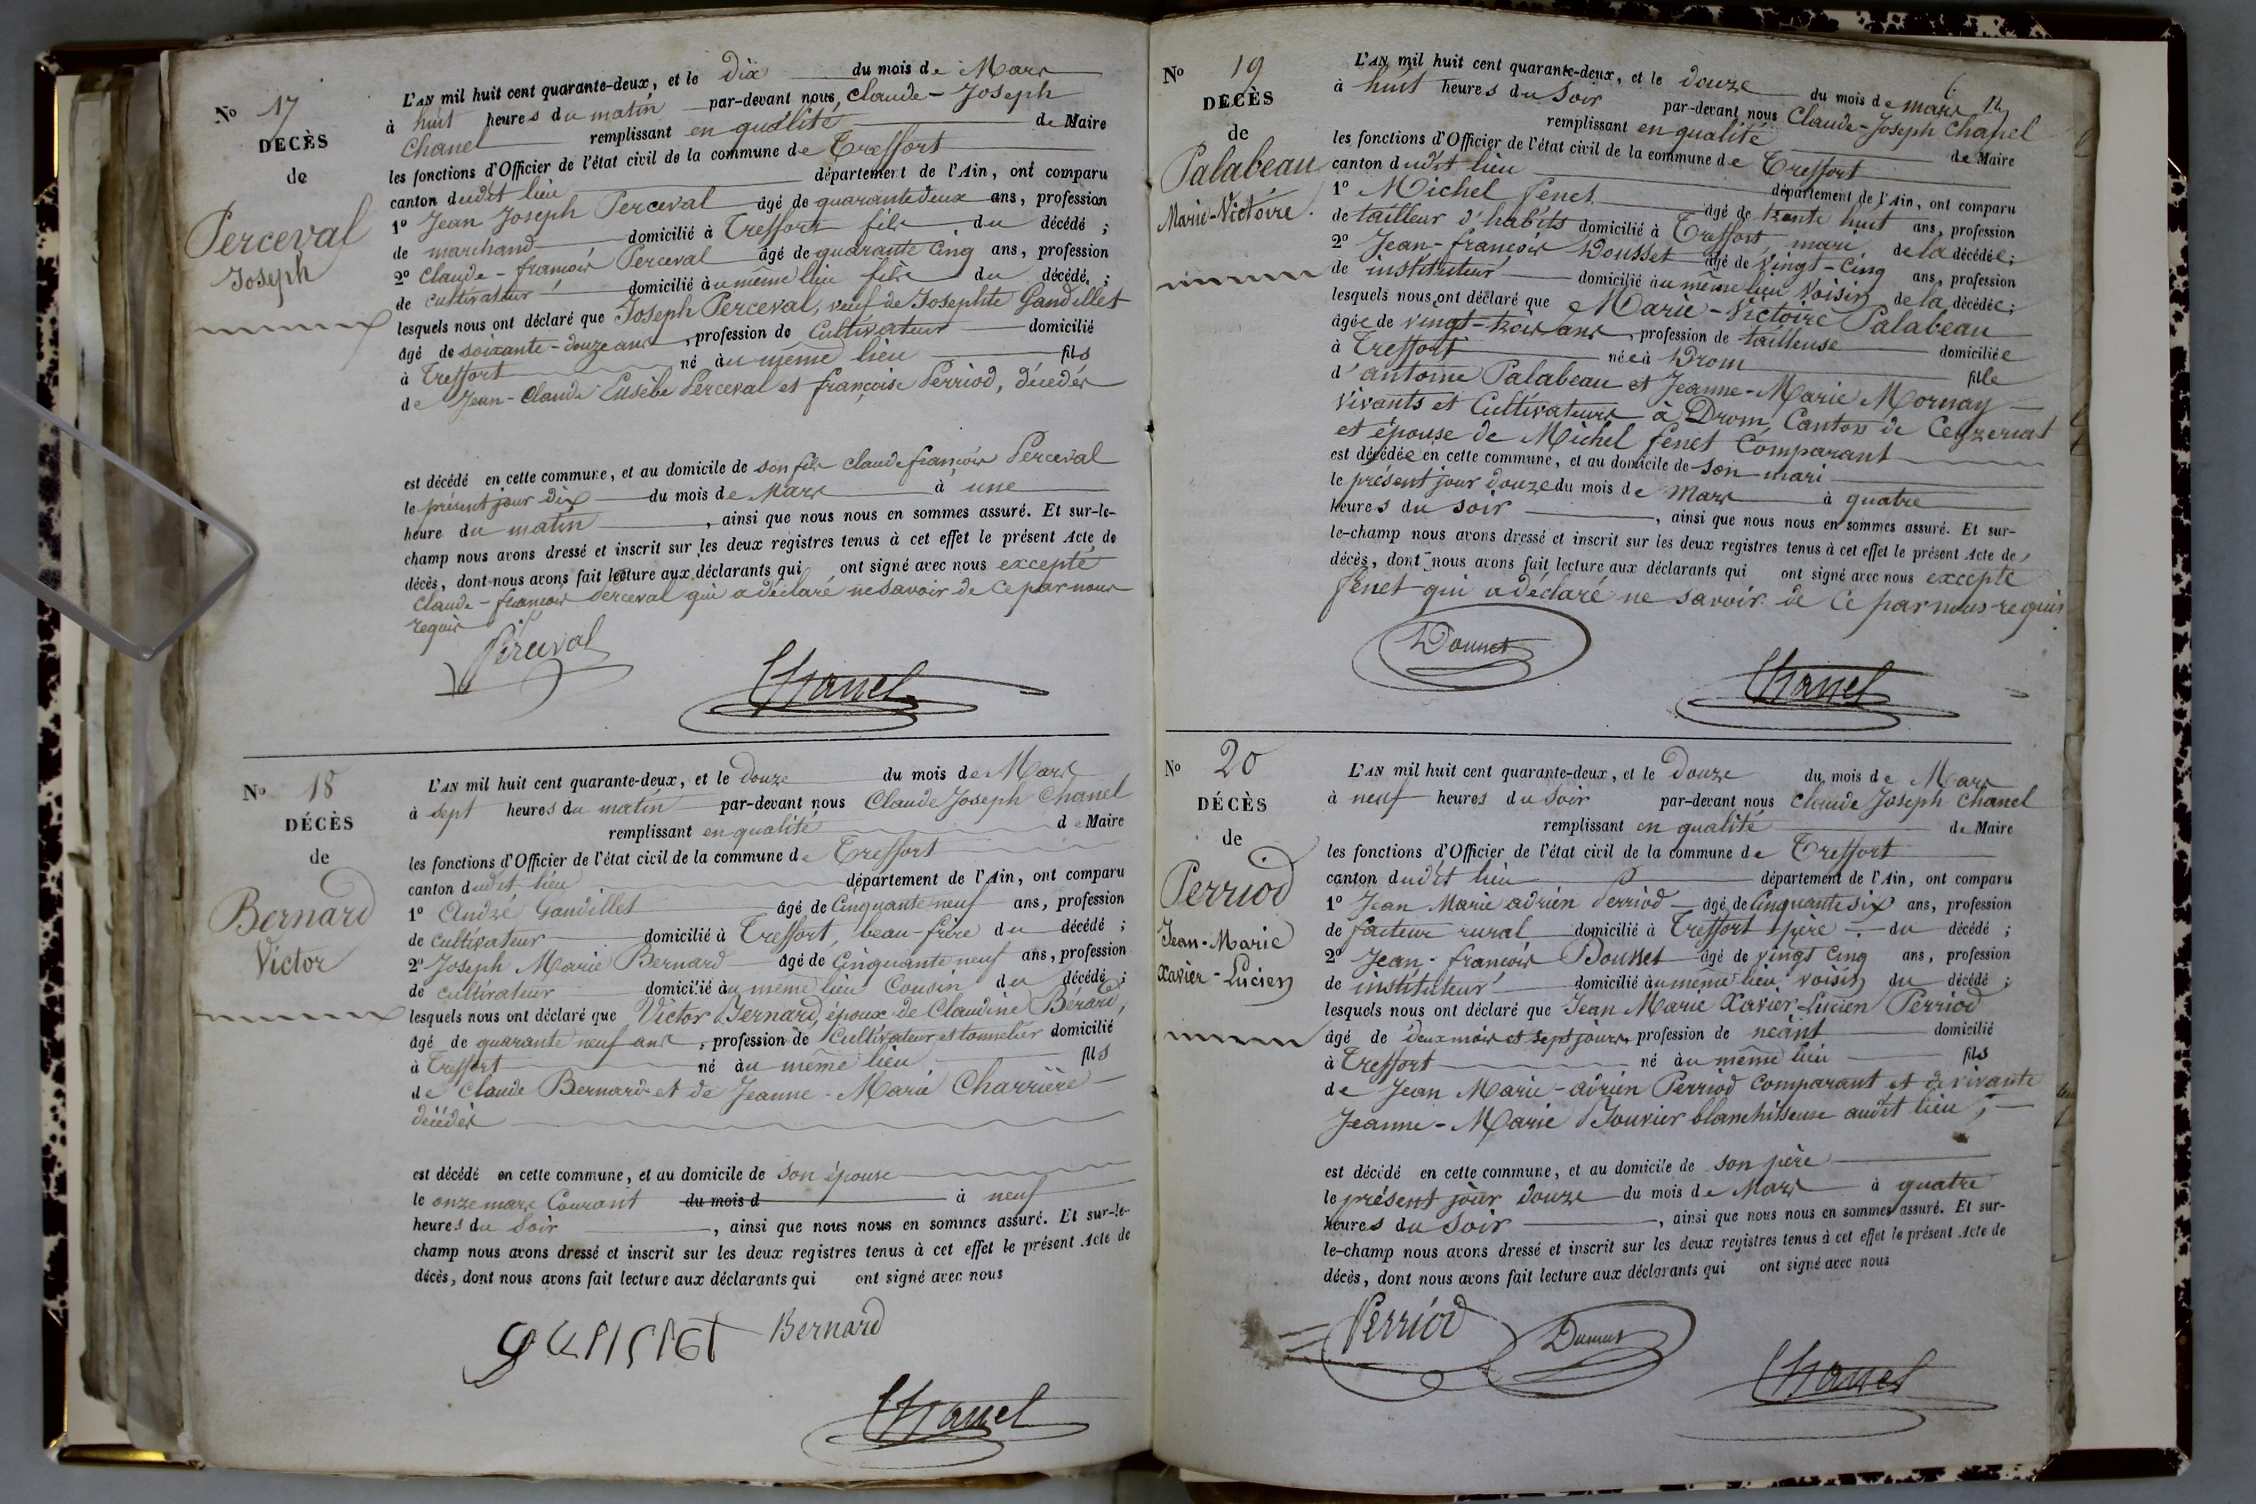 No 17
DECÈS
de
Perceval
Joseph
L'AN mil huit cent quarante-deux, et le dix du mois de Mars
à huit heures du matin par-devant nous, Claude-Joseph
Chanel remplissant en qualité de Maire
les fonctions d'Officier de l'état civil de la commune de Treffort
canton dudit lieu département de l'Ain, ont comparu
1o Jean Joseph Perceval âgé de quarante deux ans, profession
de marchand domicilié à Treffort fils du décédé ;
2o Claude-françois Perceval âgé de quarante cinq ans, profession
de cultivateur domicilié au même lieu fils du décédé ;
lesquels nous ont déclaré que Joseph Perceval, veuf de Josephte Gandillet
âgé de soixante-douze ans, profession de Cultivateur domicilié
à Treffort né au même lieu fils
de Jean-Claude Eusèbe Perceval et françoise Perriod, décédés
est décédé en cette commune, et au domicile de son fils Claude françois Perceval
le présent jour dix du mois de Mars à une
heure du matin, ainsi que nous nous en sommes assuré. Et sur-le-
champ nous avons dressé et inscrit sur les deux registres tenus à cet effet le présent Acte de
décès, dont nous avons fait lecture aux déclarants qui ont signé avec nous excepté
Claude-françois Perceval qui a déclaré ne savoir de ce par nous
requis
Perceval
Chanel
No 18
DÉCÈS
de
Bernard
Victor
L'AN mil huit cent quarante-deux, et le douze du mois de Mars
à sept heures du matin par-devant nous Claude Joseph Chanel
remplissant en qualité de Maire
les fonctions d'Officier de l'état civil de la commune de Treffort
canton dudit lieu département de l'Ain, ont comparu
1o André Gandillet âgé de Cinquante neuf ans, profession
de cultivateur domicilié à Treffort, beau-frère du décédé ;
2o Joseph Marie Bernard âgé de Cinquante neuf ans, profession
de cultivateur domicilié au même lieu Cousin du décédé ;
lesquels nous ont déclaré que Victor Bernard, époux de Claudine Bérard,
âgé de quarante neuf ans, profession de Cultivateur et tonnelier domicilié
à Treffort né au même lieu fils
de Claude Bernard et de Jeanne-Marie Charrière
décédés
est décédé en cette commune, et au domicile de son épouse
le onze mars Courant du mois d à neuf
heures du soir, ainsi que nous nous en sommes assuré. Et sur-le-
champ nous avons dressé et inscrit sur les deux registres tenus à cet effet le présent Acte de
décès, dont nous avons fait lecture aux déclarants qui ont signé avec nous
Bernard
Chanel
No 19
DECÈS
de
Palabeau
Marie-Victoire.
L'AN mil huit cent quarante-deux, et le douze du mois de mars
à huit heures du Soir par-devant nous Claude-Joseph Chanel
remplissant en qualité de Maire
les fonctions d'Officier de l'état civil de la commune de Treffort
canton dudit lieu département de l'Ain, ont comparu
1o Michel fenet âgé de trente huit ans, profession
de tailleur d'habits domicilié à Treffort, mari de la décédée ;
2o Jean-françois Dousset âgé de vingt-cinq ans, profession
de instituteur domicilié au même lieu Voisin de la décédée ;
lesquels nous ont déclaré que Marie-Victoire Palabeau
âgée de vingt-trois ans, profession de tailleuse domiciliée
à Treffort née à Drom fille
d'antoine Palabeau et Jeanne-Marie Mornay
vivants et Cultivateurs à Drom, Canton de Ceyzeriat
et épouse de Michel fenet Comparant
est décédée en cette commune, et au domicile de son mari
le présent jour douze du mois de Mars à quatre
heures du soir, ainsi que nous nous en sommes assuré. Et sur-
le-champ nous avons dressé et inscrit sur les deux registres tenus à cet effet le présent Acte de
décès, dont nous avons fait lecture aux déclarants qui ont signé avec nous excepté
fenet qui a déclaré ne savoir de ce par nous requis
Chanel
No 20
DÉCÈS
de
Perriod
Jean-Marie
Xavier-Lucien
L'AN mil huit cent quarante-deux, et le douze du mois de Mars
à neuf heures du Soir par-devant nous Claude Joseph Chanel
remplissant en qualité de Maire
les fonctions d'Officier de l'état civil de la commune de Treffort
canton dudit lieu département de l'Ain, ont comparu
1o Jean Marie adrien Perriod âgé de Cinquante six ans, profession
de facteur rural domicilié à Treffort père du décédé ;
2o Jean-françois Dousset âgé de vingt cinq ans, profession
de instituteur domicilié au même lieu voisin du décédé ;
lesquels nous ont déclaré que Jean Marie Xavier-Lucien Perriod
âgé de deux mois et sept jours, profession de néant domicilié
à Treffort né au même lieu fils
de Jean Marie-adrien Perriod comparant et de vivante
Jeanne-Marie Jouvier blanchisseuse audit lieu ;
est décédé en cette commune, et au domicile de son père
le présent jour douze du mois de Mars à quatre
heures du Soir, ainsi que nous nous en sommes assuré. Et sur-
le-champ nous avons dressé et inscrit sur les deux registres tenus à cet effet le présent Acte de
décès, dont nous avons fait lecture aux déclarants qui ont signé avec nous
Perriod
Chanel